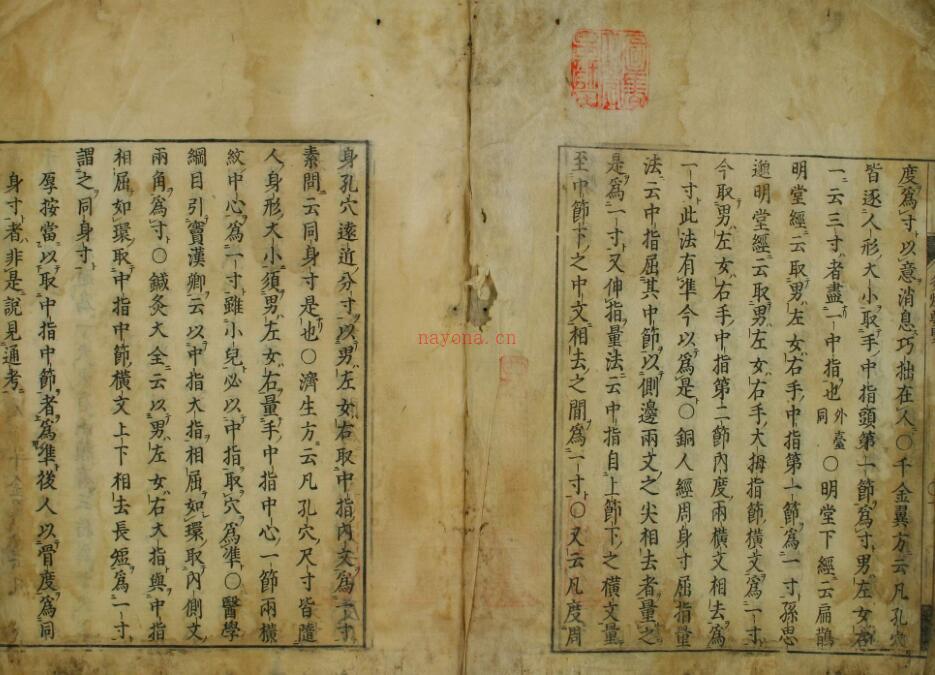 度爲寸以意消息巧拙在人○千金翼方云凡孔穴
皆逐人形大小取手中指頭第一節爲寸男左女右
一云三寸者盡一中指也外臺同○明堂下經云扁鵲
明堂經云取男左女右手中指第一節爲一寸孫思
邈明堂經云取男左女右手大拇指節橫文爲一寸
今取男左女右手中指第二節內度兩橫文相去爲
一寸此法有準今以爲是○銅人經周身寸屈指量
法云中指屈其中節以側邊兩文之尖相去者量之
是爲一寸又伸指量法云中指自上節下之橫文量
至中節下之中文相去之間爲一寸○又云凡度周
身孔穴遠近分寸以男左女右取中指內文爲一寸
素問云同身寸是也○濟生方云凡孔穴尺寸皆隨
人身形大小須男左女右量手中指中心一節兩橫
紋中心爲一寸雖小兒必以中指取穴爲準○醫學
綱目引竇漢卿云以中指大指相屈如環取內側文
兩角爲寸○鍼灸大全云以男左女右大指與中指
相屈如環取中指中節橫文上下相去長短爲一寸
謂之同身寸
厚按當以取中指中節者爲準後人以骨度爲同
身寸者非是說見通考
nayona.cn